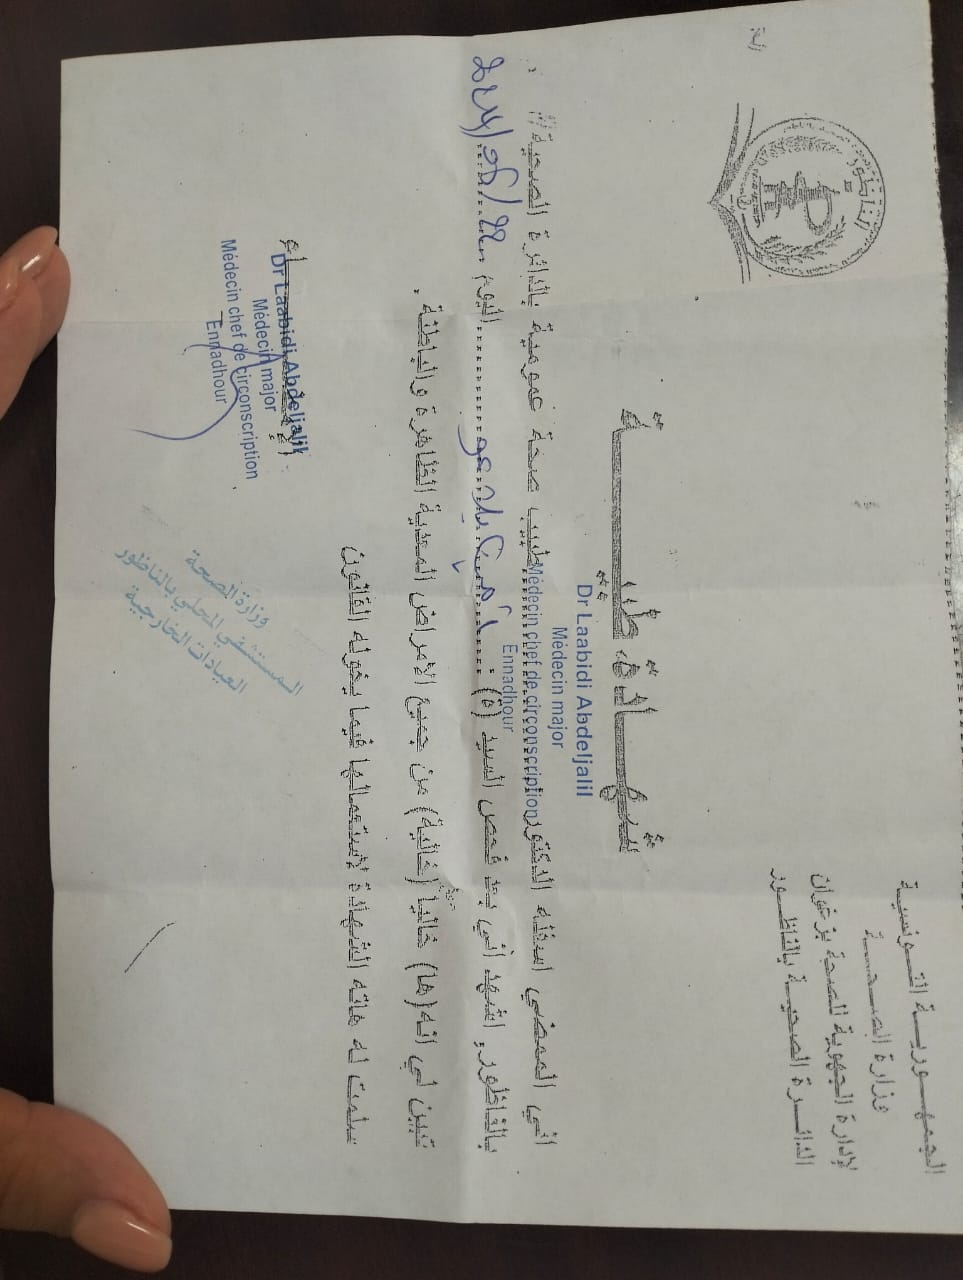 الجمهورية التونسية
وزارة الصحة
لإدارة الجهوية للصحة بزغوان
الدائرة الصحية بالناظور
الناظور
شهادة طبية
Dr Laabidi Abdeljalil
Médecin major
Médecin chef de circonscription
Ennadhour
اني الممضي اسفله الدكتور طبيب صحة عمومية بالدائرة الصحية
بالناظور, اشهد أني بعد فحص السيد (ة) اليوم
تبين لي انه (ها) خاليا (خالية) من جميع الأمراض المعدية الظاهرة والباطنة .
سلمت له هاته الشهادة لإستعمالها فيما يخوله القانون
الإمضاء
Dr Laabidi Abdeljalil
Médecin major
Médecin chef de circonscription
Ennadhour
وزارة الصحة
المستشفى المحلي بالناظور
العيادات الخارجية